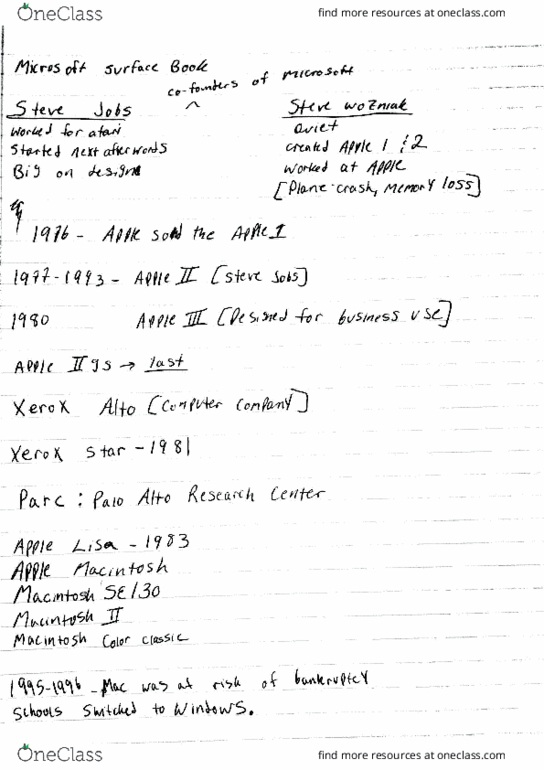 OneClass
find more resources at oneclass.com
Microsoft surface Book
co-founders of microsoft
^
Steve Jobs
Worked for atari
Started next afterwords
Big on designe
Steve wozniak
Quiet
created Apple 1 & 2
worked at Apple
[Plane crash, memory loss]
1976 - Apple sold the Apple I
1977-1993 - Apple II [steve Jobs]
1980 Apple III [Designed for business use]
Apple II gs → last
Xerox Alto [Computer Company]
Xerox star - 1981
Parc : Palo Alto Research Center
Apple Lisa - 1983
Apple Macintosh
Macintosh SE/30
Macintosh II
Macintosh Color classic
1995-1996 - Mac was at risk of bankruptcy
schools switched to windows.
OneClass
find more resources at oneclass.com